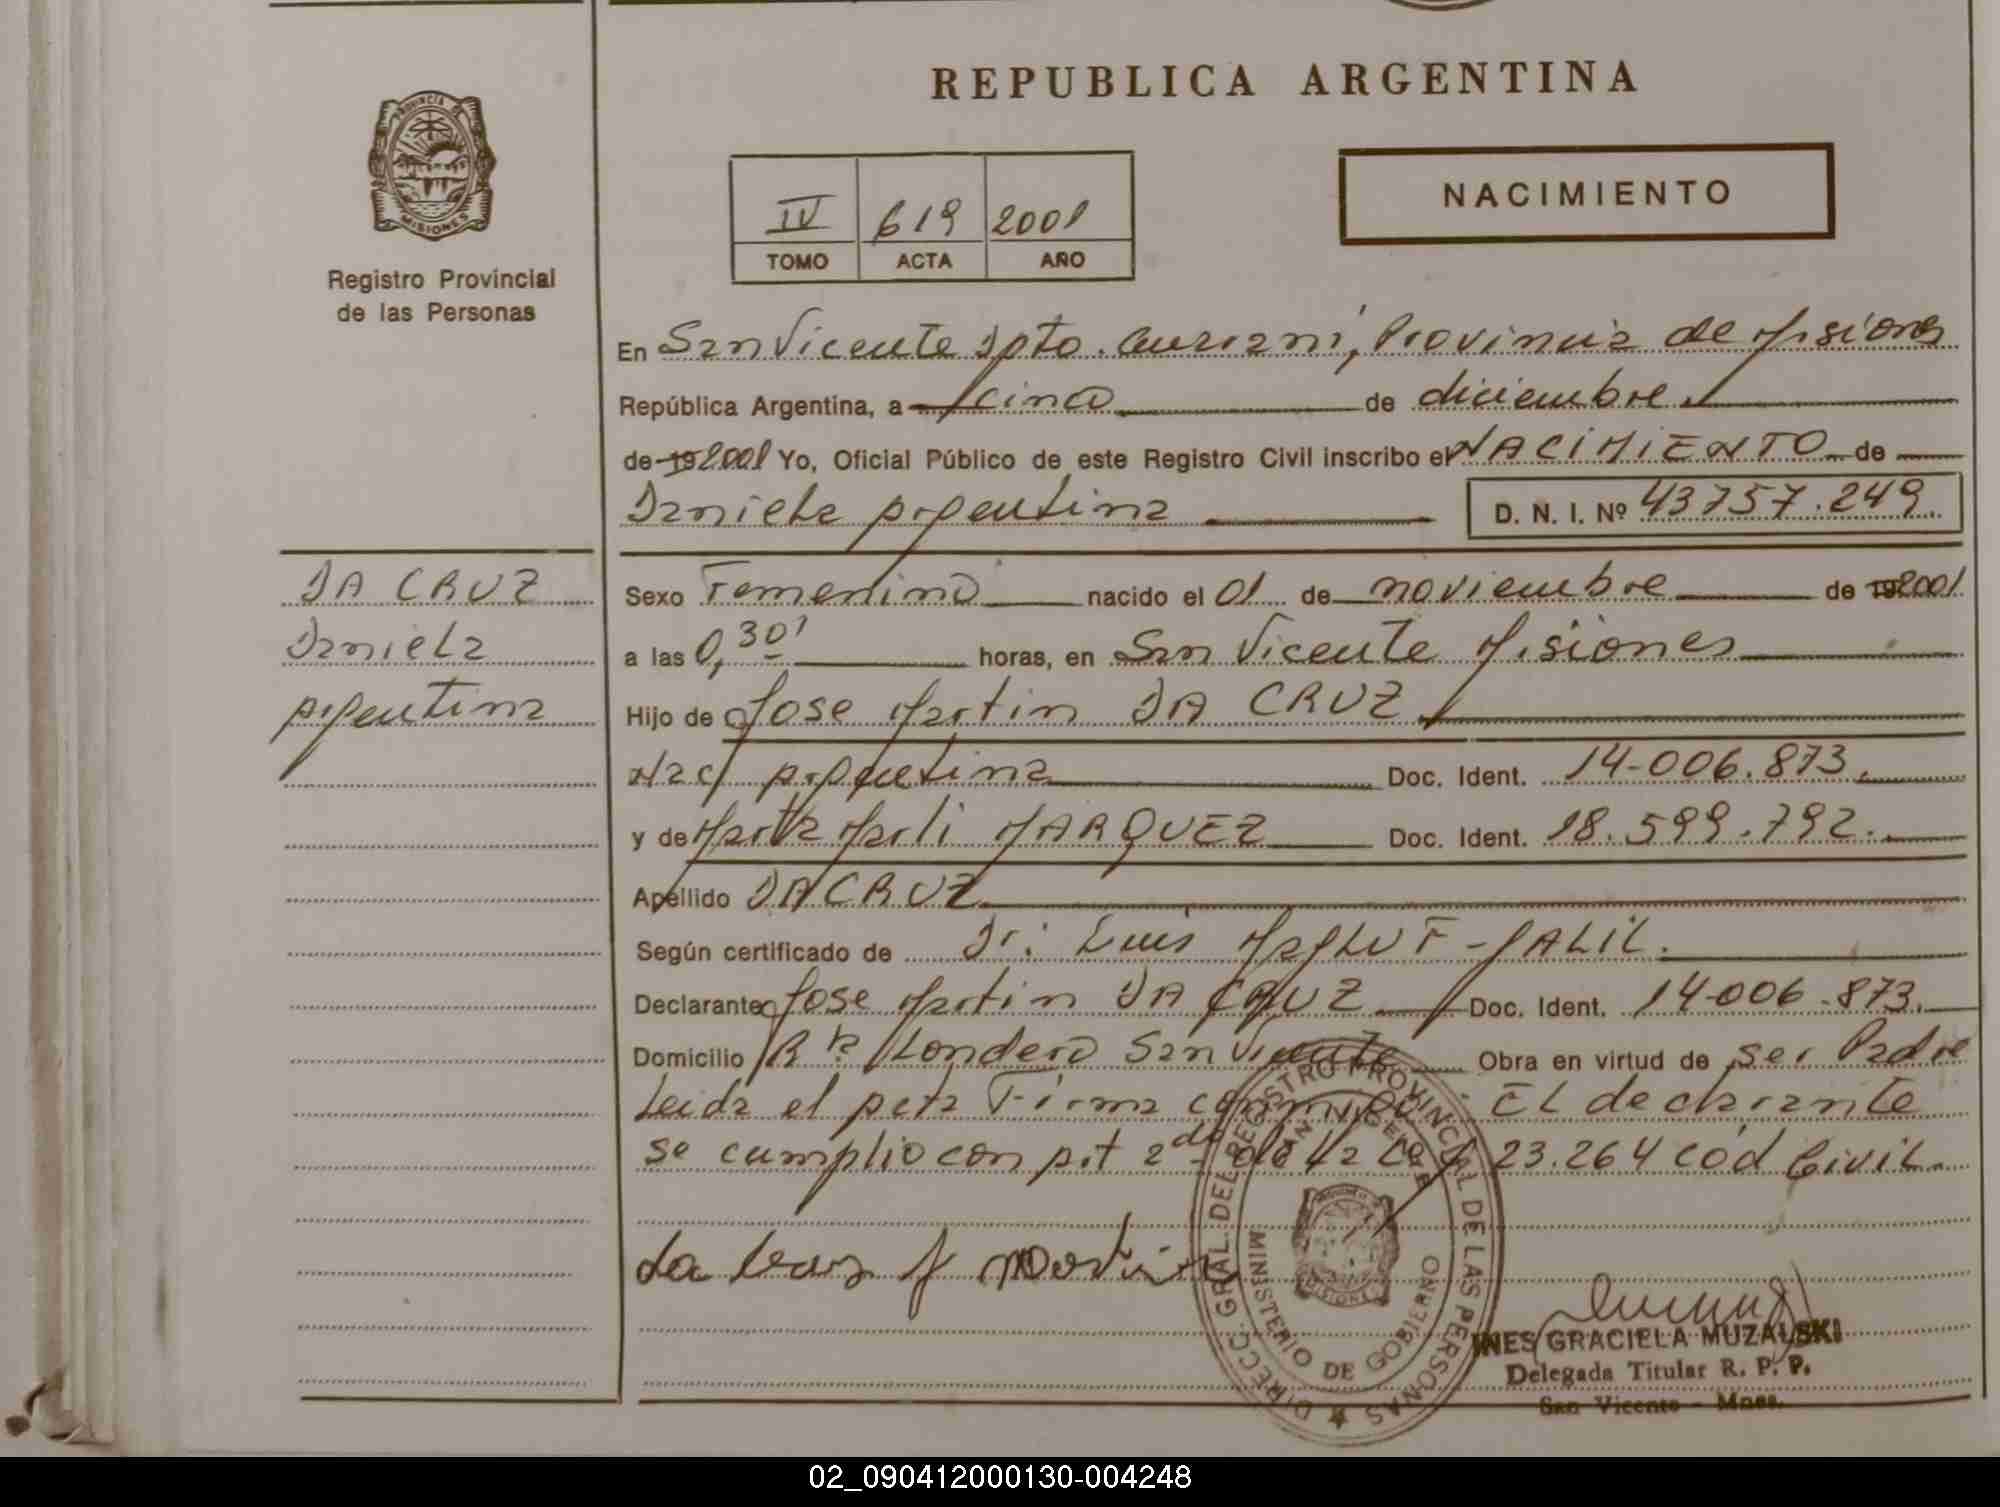 REPUBLICA ARGENTINA
PROVINCIA DE
MISIONES
Registro Provincial
de las Personas
NACIMIENTO
IV 619 2001
TOMO ACTA AÑO
En San Vicente Dpto. Guarani, Provincia de Misiones
República Argentina, a cinco de diciembre
de 19 2001 Yo, Oficial Público de este Registro Civil inscribo el NACIMIENTO de
Daniela Argentina D. N. I. Nº 43757.249.
DA CRUZ
Daniela
Argentina
Sexo Femenino nacido el 01 de noviembre de 19 2001
a las 0,30' horas, en San Vicente Misiones
Hijo de Jose Martin DA CRUZ
Nac/ Argentina Doc. Ident. 14-006.873.
y de Marta Marli MARQUEZ Doc. Ident. 18.599.792.
Apellido DA CRUZ
Según certificado de Dr: Luis MALIL.
Declarante Jose Martin DA CRUZ Doc. Ident. 14-006.873.
Domicilio Londero San Vicente Obra en virtud de ser Padre
Leida el Acta Firma conmigo: EL declarante
se cumplio con Art 2do de la Ley 23.264 Cód Civil.
da Cruz J Martin
DIRECC. GRAL. DEL REGISTRO PROVINCIAL DE LAS PERSONAS
SAN VICENTE
MISIONES
MINISTERIO DE GOBIERNO
INES GRACIELA MUZALSKI
Delegada Titular R. P. P.
San Vicente - Mnes.
02_090412000130-004248